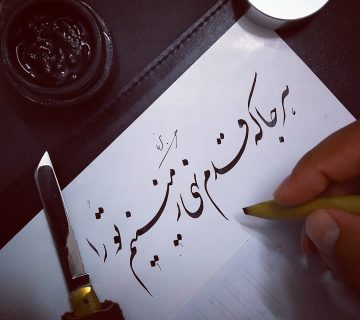 هر جا که قدم نهی زمینم تو را